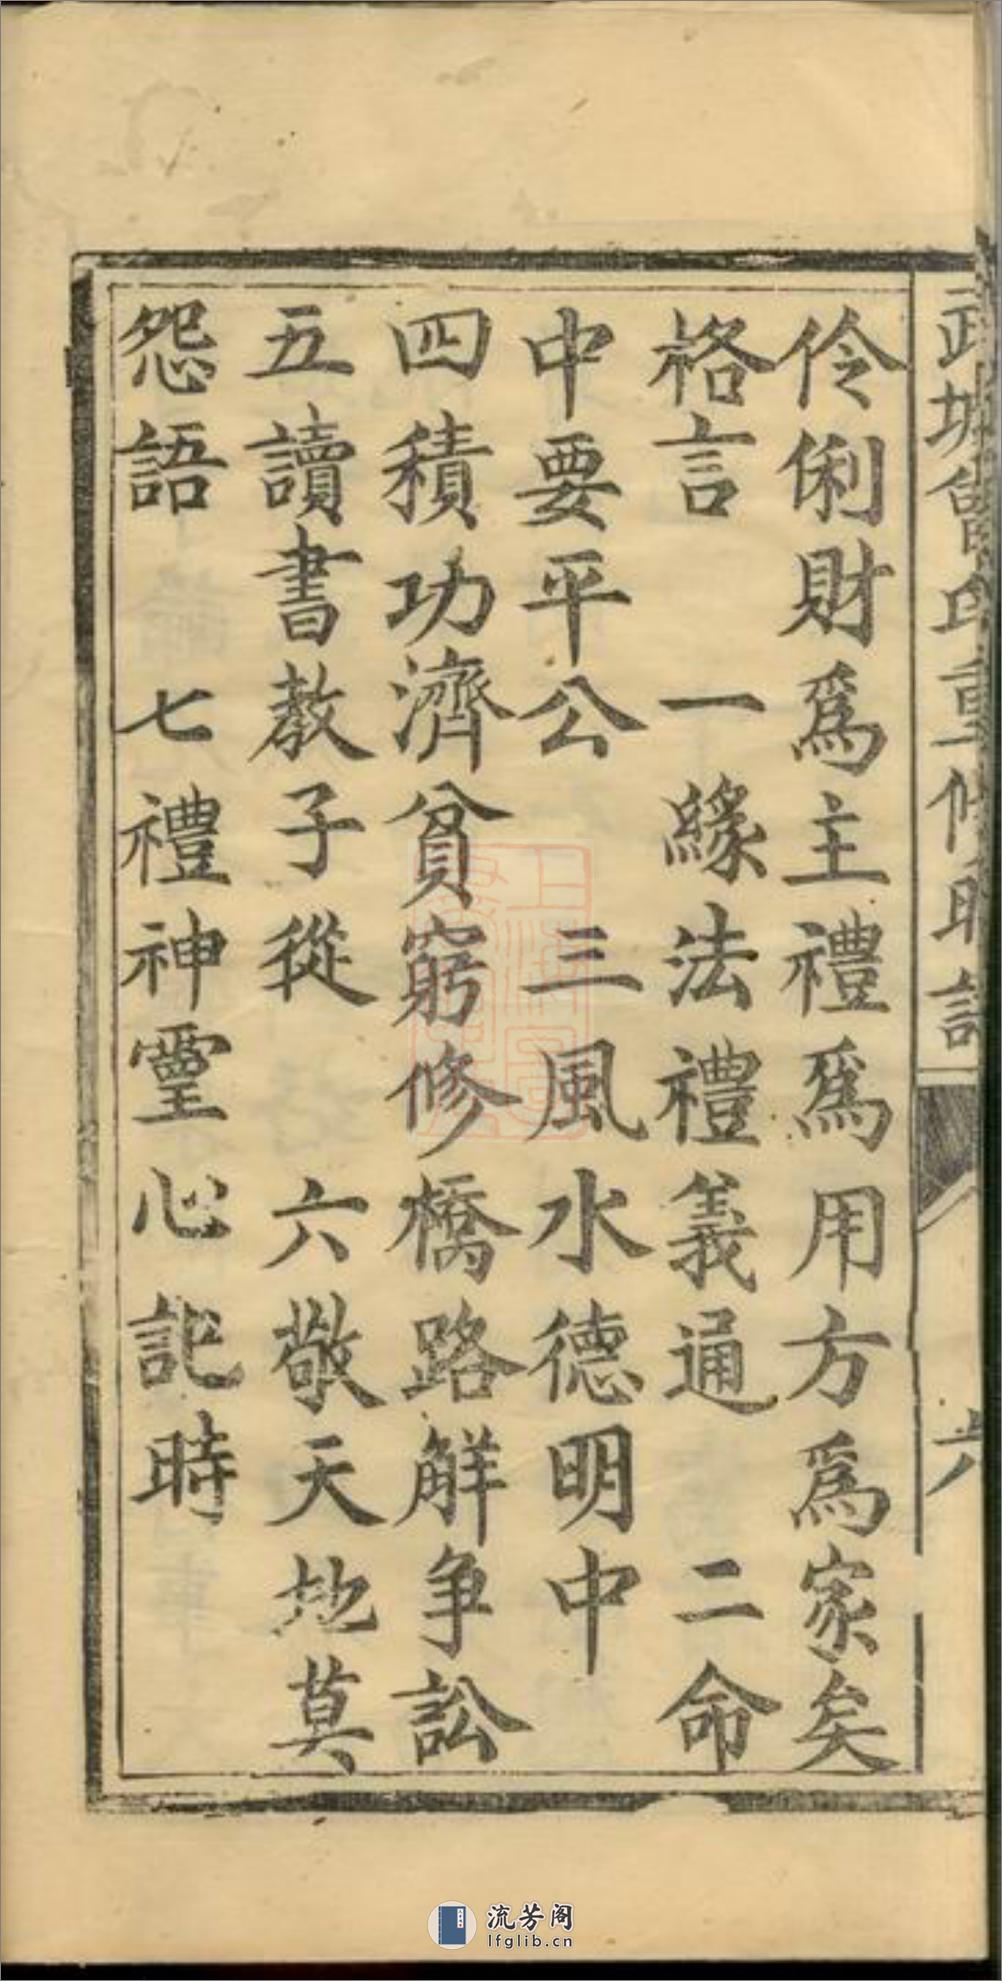 武城曾氏重修
六
伶俐財爲主禮爲用方爲家矣
格言　一緣法禮義通　二命
中要平公　三風水德明中
四積功濟貧窮修橋路解爭訟
五讀書教子從　六敬天地莫
怨語　七禮神靈心記時
流芳阁
lfglib.cn